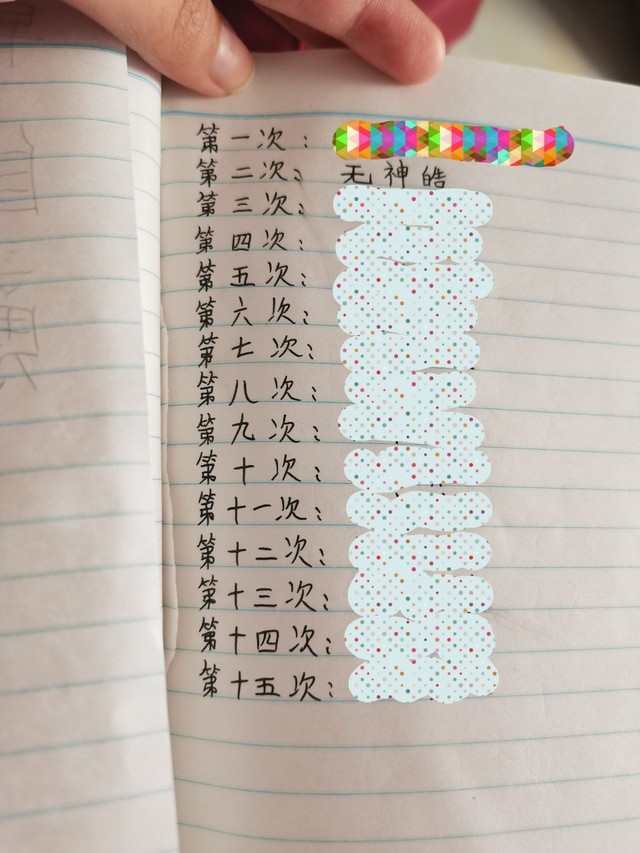 第一次：
第二次：无神皓
第三次：
第四次：
第五次：
第六次：
第七次：
第八次：
第九次：
第十次：
第十一次：
第十二次：
第十三次：
第十四次：
第十五次：